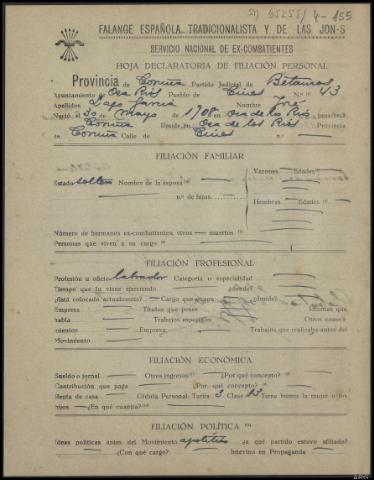 51) 65255/4-155
FALANGE ESPAÑOLA TRADICIONALISTA Y DE LAS JON-S
SERVICIO NACIONAL DE EX-COMBATIENTES
HOJA DECLARATORIA DE FILIACIÓN PERSONAL
Provincia de Coruña Partido Judicial de Betanzos
Ayuntamiento Oza Ríos Pueblo de Cines N.º 43
Apellidos Lago García Nombre José
Nació el 30 de Mayo de 1908 en Oza de los Ríos, provincia
Coruña Reside en Oza de los Ríos, provincia
Coruña Calle de Cines n.º
FILIACIÓN FAMILIAR
Varones Edades
Estado soltero Nombre de la esposa
n.º de hijos
Hembras Edades
Número de hermanos ex-combatientes, vivos — muertos
Personas que viven a su cargo
FILIACIÓN PROFESIONAL
Profesión u oficio labrador Categoría o especialidad
Tiempo que lo viene ejerciendo ¿dónde?
¿Está colocado actualmente? — Cargo que ocupa ¿dónde?
Empresa Títulos que posee Idiomas que
habla Trabajos especiales Otros conoci-
mientos Empresa Trabajos que realizaba antes del
Movimiento
FILIACIÓN ECONÓMICA
Sueldo o jornal Otros ingresos ¿Por qué concepto?
Contribución que paga ¿Por qué concepto?
Renta de casa Cédula Personal: Tarifa 3 Clase 13 Tiene bienes la mujer o los
hijos — ¿En qué cuantía?
FILIACIÓN POLÍTICA
Ideas políticas antes del Movimiento apolítico ¿a qué partido estuvo afiliado?
¿Con qué cargo? Intervino en Propaganda